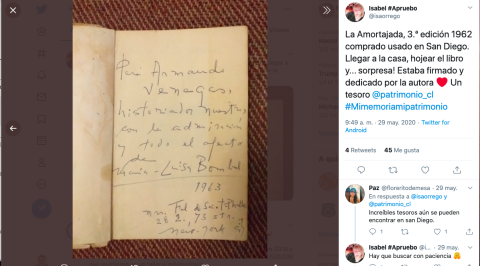 Para Armando
Venegas,
historiador nuestro,
con la admiración
y todo el afecto
de
María-Luisa Bombal
1963
New-York
Isabel #Apruebo
@isaorrego
La Amortajada, 3.ª edición 1962
comprado usado en San Diego.
Llegar a la casa, hojear el libro
y... sorpresa! Estaba firmado y
dedicado por la autora ❤️ Un
tesoro @patrimonio_cl
#Mimemoriamipatrimonio
9:49 a. m. · 29 may. 2020 · Twitter for
Android
4 Retweets 45 Me gusta
Paz @floreritodemesa · 29 may.
En respuesta a @isaorrego y
@patrimonio_cl
Increíbles tesoros aún se pueden
encontrar en san Diego.
1 1
Isabel #Apruebo @i... · 29 may.
Hay que buscar con paciencia 🤗